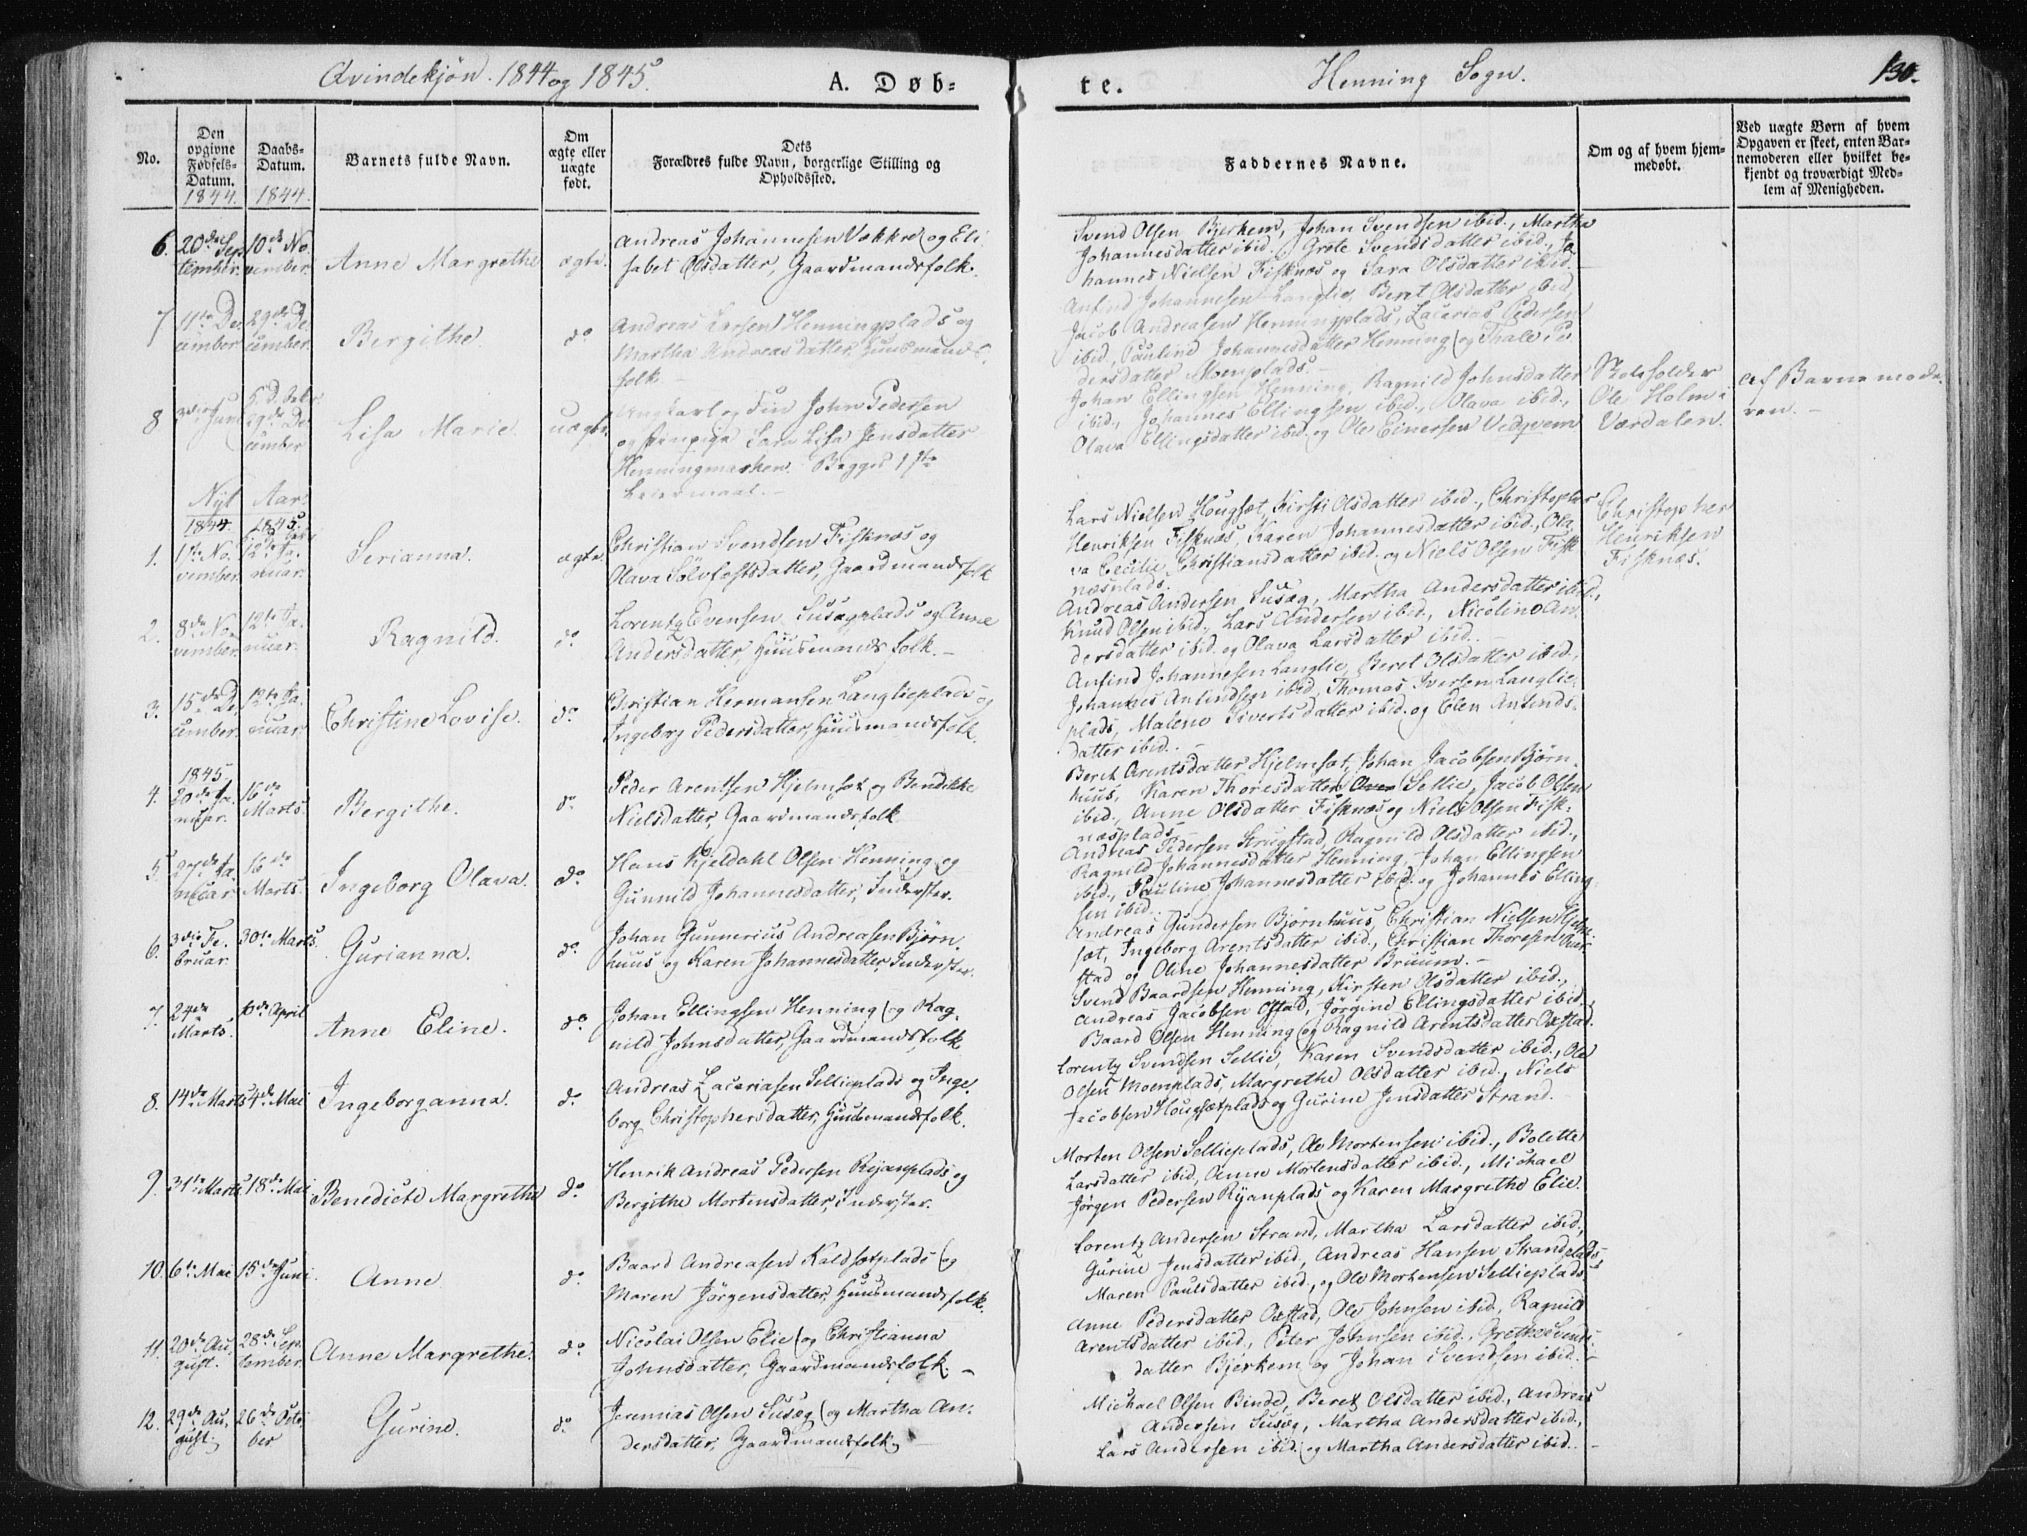 Qvindekjön. 1844 og 1845.
A. Døb-
te.
Henning Sogn.
130.
No.
Den opgivne Fødsels-Datum.
1844.
Daabs-Datum.
1844.
Barnets fulde Navn.
Om ægte eller uægte født.
Dets
Forældres fulde Navn, borgerlige Stilling og
Opholdssted.
Faddernes Navne.
Om og af hvem hjem-
medøbt.
Ved uægte Børn af hvem
Opgaven er skeet, enten Bar-
nemoderen eller hvilket be-
kjendt og troværdigt Med-
lem af Menigheden.
6.
20de Sep
tember.
10de No
vember.
Anne Margrethe
ægte.
Andreas Johannesen Vokkre og Eli
sabet Olsdatter, Gaardmandsfolk.
Svend Olsen Bjerkem, Johan Svendsen ibid., Martha
Johannesdatter ibid., Grete Svendsdatter ibid., Jo
hannes Nielsen Fisknæs og Sara Olsdatter ibid.
7
11te De
cember
29de De
cember.
Bergithe.
do
Andreas Larsen Henningplads og
Martha Andreasdatter, Huusmands
folk.
Anfind Johannesen Langlie, Beret Olsdatter ibid,
Jacob Andreasen Henningplads, Zacarias Pedersen
ibid, Pauline Johannesdatter Henning og Thale Pe
dersdatter Moenplads.
8
3die Juni
29de De
cember
Lisa Marie.
uægte.
Ungkarl og Fin John Pedersen
og Finnpige Sara Lisa Jensdatter
Henningmarken. Begges 1ste
Leiermaal.
Johan Ellingsen Henning, Ragnild Johnsdatter
ibid., Johannes Ellingsen ibid., Olava ibid.,
Olava Ellingsdatter ibid. og Ole Einersen Vedqvem
Skoleholder
Ole Holm i
Værdalen.
Af Barnemode.
ren.
Nyt Aar.
1844.
1845.
1.
1ste No
vember.
12te Ja
nuar.
Serianna.
ægte
Christian Svendsen Fisknæs og
Olava Solvløstsdatter, Gaardmandsfolk
Lars Nielsen Hougsæt, Kirsti Olsdatter ibid., Christopher
Henriksen Fisknæs, Karen Johannesdatter ibid., Ola
va Cecilie Christiansdatter ibid. og Niels Olsen Fisk
næsplads.
Christopher
Henriksen
Fisknæs.
2.
8de No
vember.
12te Ja
nuar.
Ragnild.
do.
Lorentz Evensen Susægplads og Anne
Andersdatter, Huusmandsfolk.
Andreas Andersen Susæg, Martha Andersdatter ibid.,
Knud Olsen ibid., Lars Andersen ibid., Nicoline An
dersdatter ibid. og Olava Larsdatter ibid.
3.
15de De
cember.
12te Ja
nuar.
Christine Lovise.
do
Christian Hermansen Langlieplads og
Ingeborg Pedersdatter, Huusmandsfolk.
Anfind Johannesen Langlie, Beret Olsdatter ibid.,
Johannes Anfindsen ibid., Thomas Iversen Langlie
plads, Malene Sivertsdatter ibid. og Elen Anfinds
datter ibid.
1845
4.
20de Ja
nuar.
16de
Marts.
Bergithe.
do
Peder Arentsen Hjelmsæt og Bendikke
Nielsdatter, Gaardmandsfolk
Beret Arentsdatter Hjelmsæt, Johan Jacobsen Bjørn
huus, Karen Thoresdatter Sellie, Jacob Olsen
ibid., Anne Olsdatter Fisknæs og Niels Olsen Fisk-
næsplads.
5.
27de Ja
nuar.
16de
Marts.
Ingeborg Olava.
do
Hans Kjeldahl Olsen Henning og
Gunnild Johannesdatter, Inderster.
Andreas Pedersen Strugstad, Ragnild Olsdatter ibid.,
Ragnild Johannesdatter Henning, Johan Ellingsen
ibid., Pauline Johannesdatter ibid. og Johannes Elling
sen ibid.
6.
3die Fe
bruar.
30te Marts.
Gurianna.
do
Johan Gunnerius Andreasen Bjørn
huus og Karen Johannesdatter, Inderster.
Andreas Gundersen Bjørnhuus, Christian Nielsen Hjelm
sæt, Ingeborg Arentsdatter ibid., Christian Thoresen Quar
stad og Oline Johannesdatter Bruum.
7.
24de
Marts.
6de April
Anne Eline.
do
Johan Ellingsen Henning og Rag
nild Johnsdatter, Gaardmandsfolk
Svend Baardsen Henning, Kirsten Olsdatter ibid.,
Andreas Jacobsen Ofstad, Jørgine Ellingsdatter ibid.,
Baard Olsen Henning og Ragnild Arentsdatter Oxstad.
8.
14de Marts
4de Mai
Ingeborganna.
do.
Andreas Zacariasen Sellieplads og Inge
borg Christophersdatter, Huusmandsfolk.
Lorentz Svendsen Sellie, Karen Svendsdatter ibid., Ole
Olsen Moenplads, Margrethe Olsdatter ibid., Niels
Jacobsen Hougsætplads og Gurine Jensdatter Strand.
9.
31te Marts
18de Mai
Benedicte Margrethe
do
Henrik Andreas Pedersen Ryanplads og
Bergithe Mortensdatter, Inderster.
Morten Olsen Sellieplads, Ole Mortensen ibid., Bolette
Larsdatter ibid, Anne Mortensdatter ibid., Michael
Jørgen Pedersen Ryanplads og Karen Margrethe Elie.
10.
6te Mai
15de Juni.
Anne
do
Baard Andreasen Kaldsætplads og
Maren Jørgensdatter, Huusmandsfolk.
Lorentz Andersen Strand, Martha Larsdatter ibid.,
Gurine Jensdatter ibid, Andreas Hansen Strandplads
Maren Paulsdatter ibid., og Ole Mortensen Sellieplads
11.
20de Au
gust.
28de Sep
tember.
Anne Margrethe.
do
Nicolai Olsen Elie og Christianna
Johnsdatter, Gaardmandsfolk.
Anne Pedersdatter Oxstad, Ole Johnsen ibid, Ragnild
Arentsdatter ibid., Peter Johnsen ibid., Grethe Svends
datter Bjerkem og Johan Svendsen ibid.
12.
29de Au
gust.
26de Octo
ber
Gurine.
do.
Jeremias Olsen Susæg og Martha An-
dersdatter, Gaardmandsfolk
Michael Olsen Binde, Beret Olsdatter ibid., Andreas
Andersen Susæg, Martha Andersdatter ibid.,
Lars Andersen ibid. og Martha Andersdatter ibid.